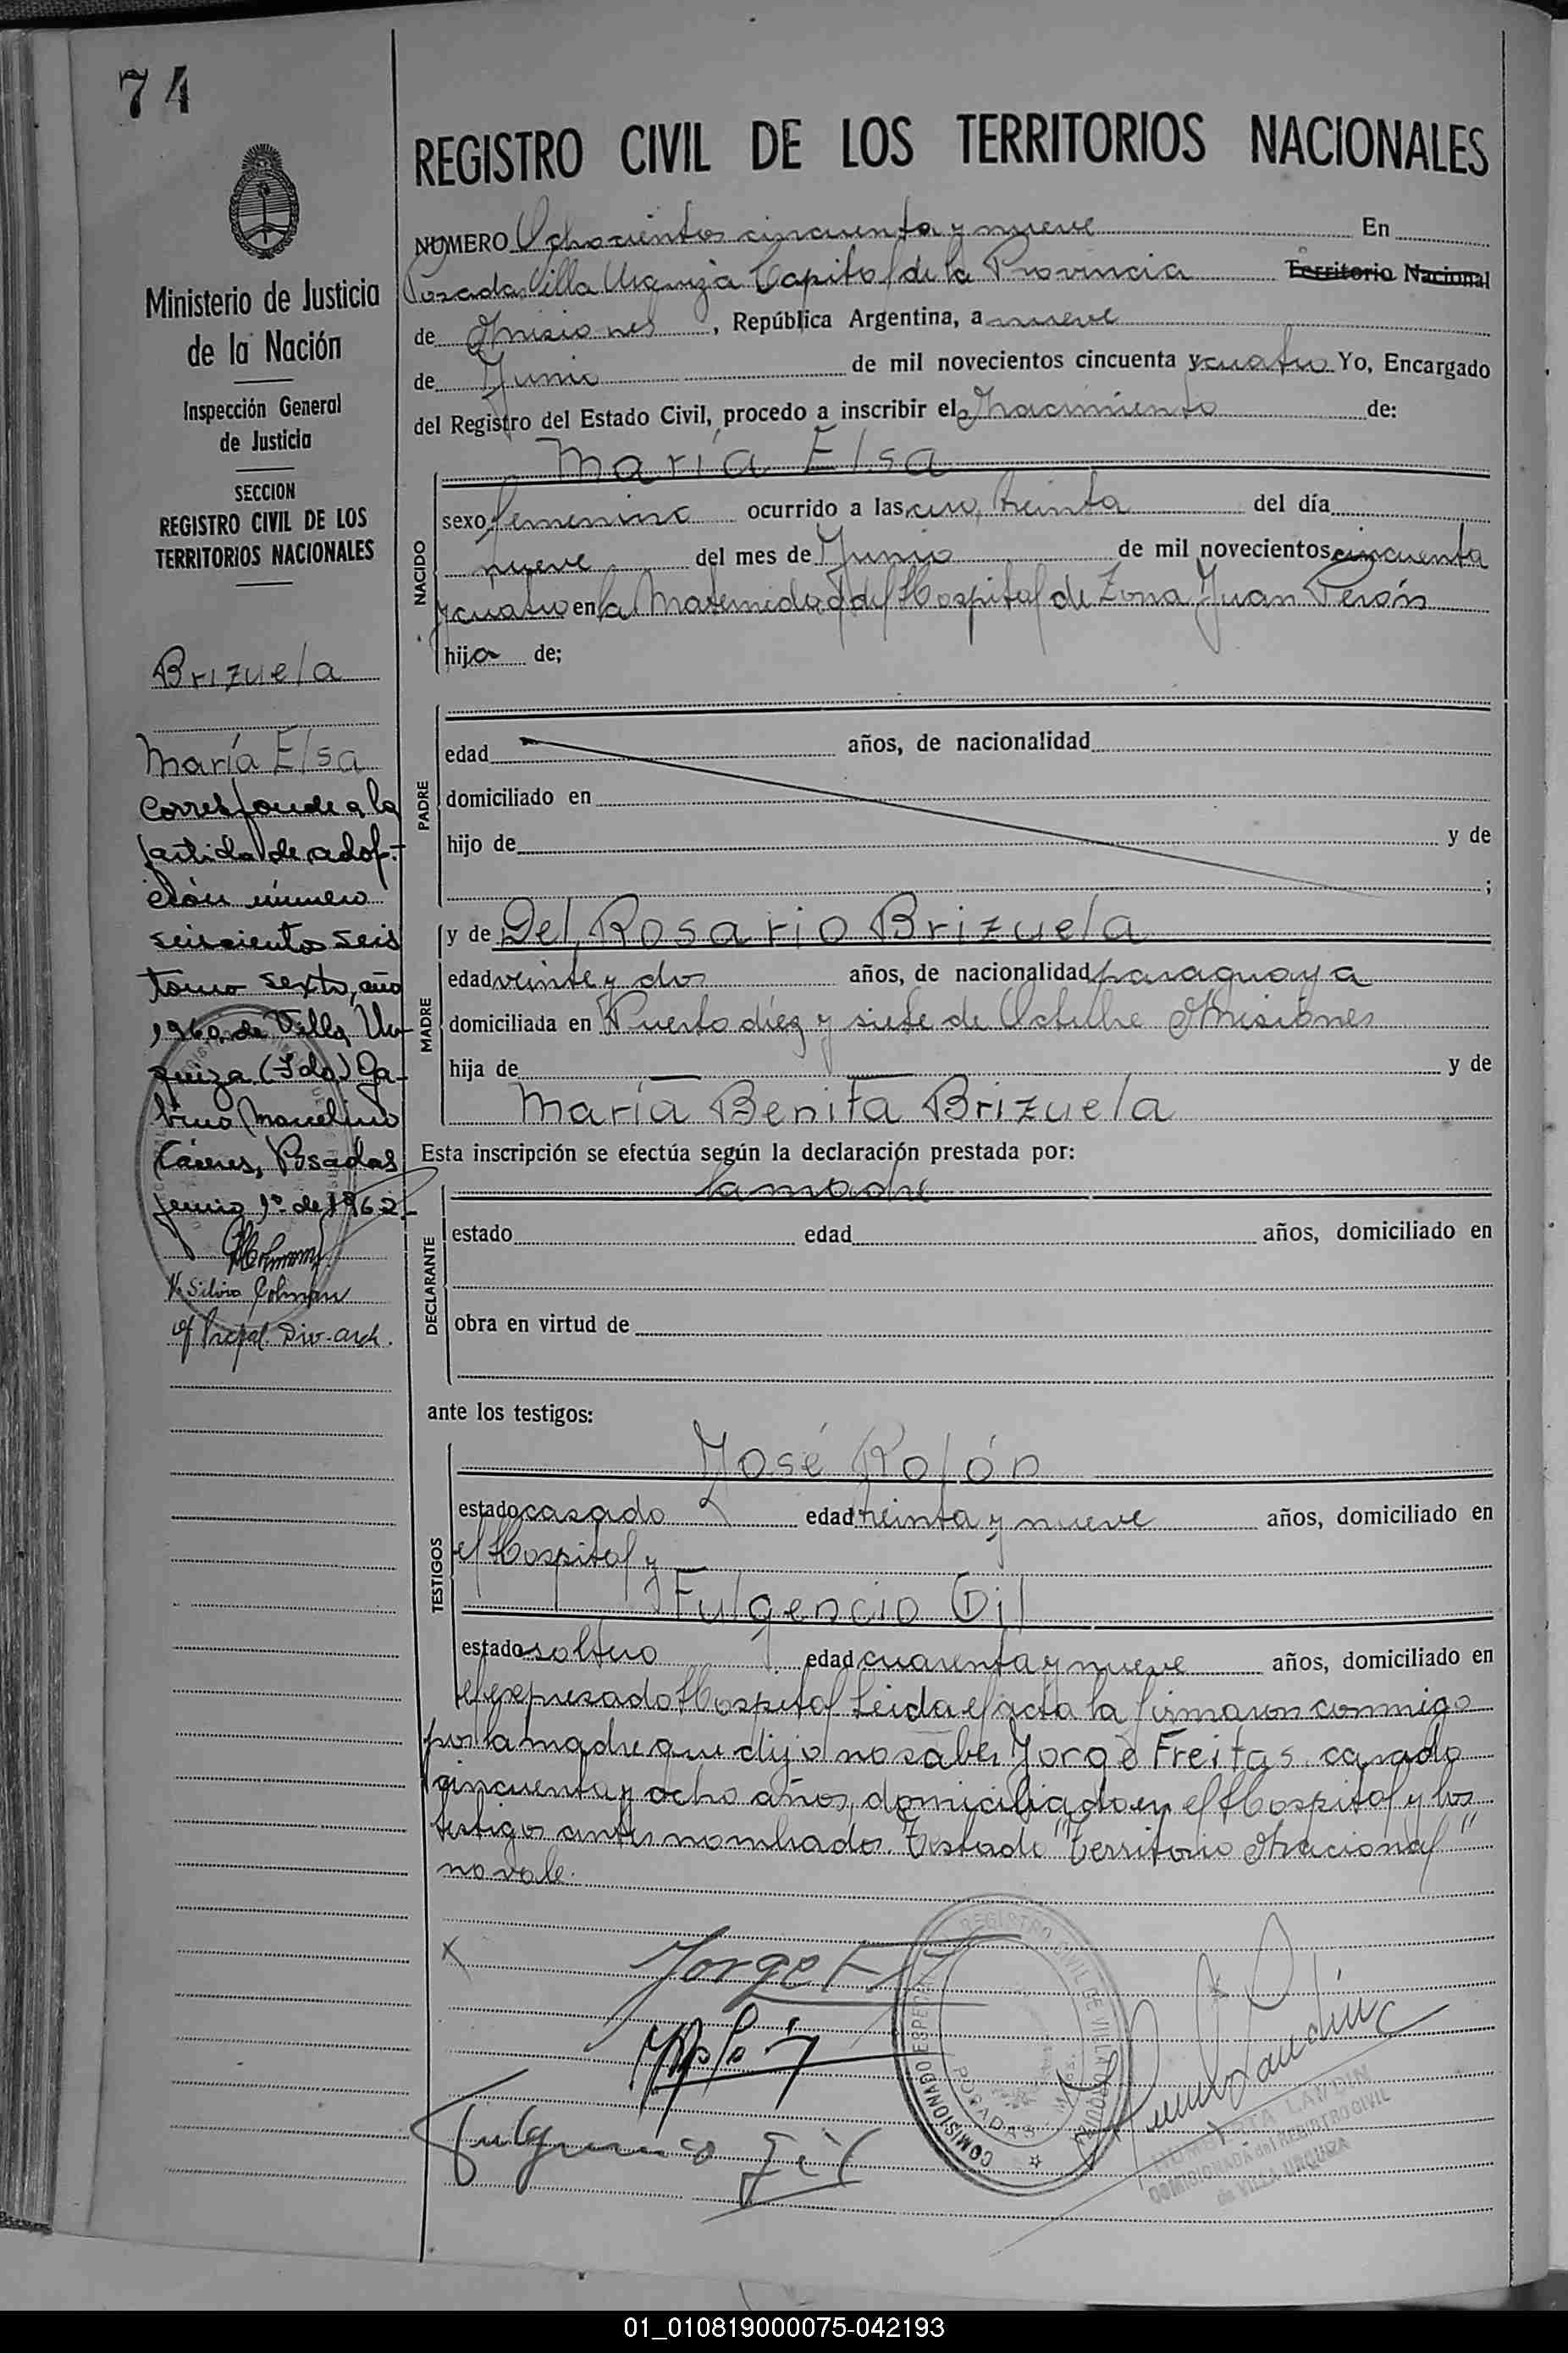 74
REGISTRO CIVIL DE LOS TERRITORIOS NACIONALES
Ministerio de Justicia
de la Nación
Inspección General
de Justicia
SECCION
REGISTRO CIVIL DE LOS
TERRITORIOS NACIONALES
Brizuela
María Elsa
Corresponde a la
partida de adop-
ción número
seiscientos seis
tomo sexto, año
1960 de Villa Ur-
quiza (Fdo) Ga-
bino Marcelino
Cáceres, Posadas
junio 1º de 1962
V. Silvio Colman
of Pcipal. Div-arch.
NUMERO Ochocientos cincuenta y nueve En
Posadas Villa Urquiza Capital de la Provincia Territorio Nacional
de Misiones, República Argentina, a nueve
de Junio de mil novecientos cincuenta y cuatro Yo, Encargado
del Registro del Estado Civil, procedo a inscribir el Nacimiento de:
María Elsa
NACIDO
sexo femenino ocurrido a las cero, treinta del día
nueve del mes de Junio de mil novecientos cincuenta
y cuatro en la Maternidad del Hospital de Zona Juan Perón
hija de;
PADRE
edad años, de nacionalidad
domiciliado en
hijo de y de
;
MADRE
y de Del Rosario Brizuela
edad veinte y dos años, de nacionalidad paraguaya
domiciliada en Puerto diez y siete de Octubre Misiones
hija de y de
María Benita Brizuela
Esta inscripción se efectúa según la declaración prestada por:
la madre
DECLARANTE
estado edad años, domiciliado en
obra en virtud de
ante los testigos:
TESTIGOS
José Rolón
estado casado edad treinta y nueve años, domiciliado en
el Hospital y
Fulgencio Gil
estado soltero edad cuarenta y nueve años, domiciliado en
el expresado Hospital Leida el acta la firmaron conmigo
por la madre que dijo no saber Jorge Freitas, casado
cincuenta y ocho años, domiciliado en el Hospital y los
testigos antes nombrados. Testado "Territorio Nacional"
no vale.
x
Jorge F
Rolón
Fulgencio Gil
REGISTRO CIVIL DE VILLA URQUIZA
COMISIONADO ESPECIAL
POSADAS
LANDIN
COMISIONADA del REGISTRO CIVIL
de VILLA URQUIZA
01_010819000075-042193